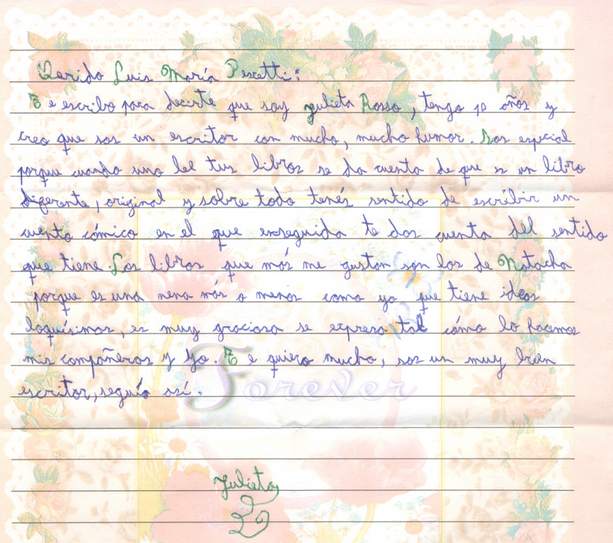 Querido Luis María Pescetti:
Te escribo para decirte que soy Julieta Rosso, tengo 10 años y
creo que sos un escritor con mucho, mucho humor. Sos especial
porque cuando uno lee tus libros se da cuenta de que es un libro
diferente, original y sobre todo tenés sentido de escribir un
cuento cómico en el que enseguida te das cuenta del sentido
que tiene. Los libros que más me gustan son los de Natacha
porque es una nena más o menos como yo, que tiene ideas
loquísimas, es muy graciosa se expresa tal cómo lo hacemos
mis compañeros y yo. Te quiero mucho, sos un muy buen
escritor, seguío así.
Forever
Julieta